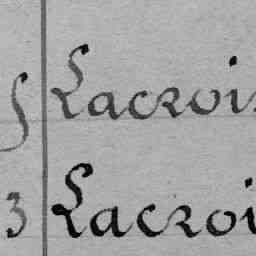 Lacroi
3 Lacroi